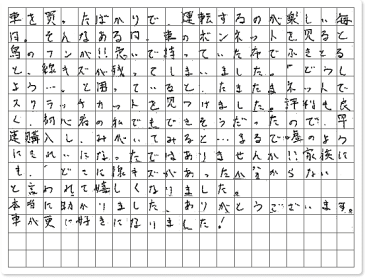 車を買ったばかりで、運転するのが楽しい毎
日。そんなある日、車のボンネットを見ると
鳥のフンが!!急いで持っていた布でふきとる
と、線キズが残ってしまいました。「どうし
よう…」と困っていると、たまたまネットで
スクラッチカットを見つけました。評判も良
く、初心者の私でもできそうだったので、早
速購入し、みがいてみると…まるで嘘のよう
にきれいになったではありませんか!!家族に
も、「どこに線キズがあったか分からない」
と言われて嬉しくなりました。
本当に助かりました、ありがとうございます。
車が更に好きになりました!